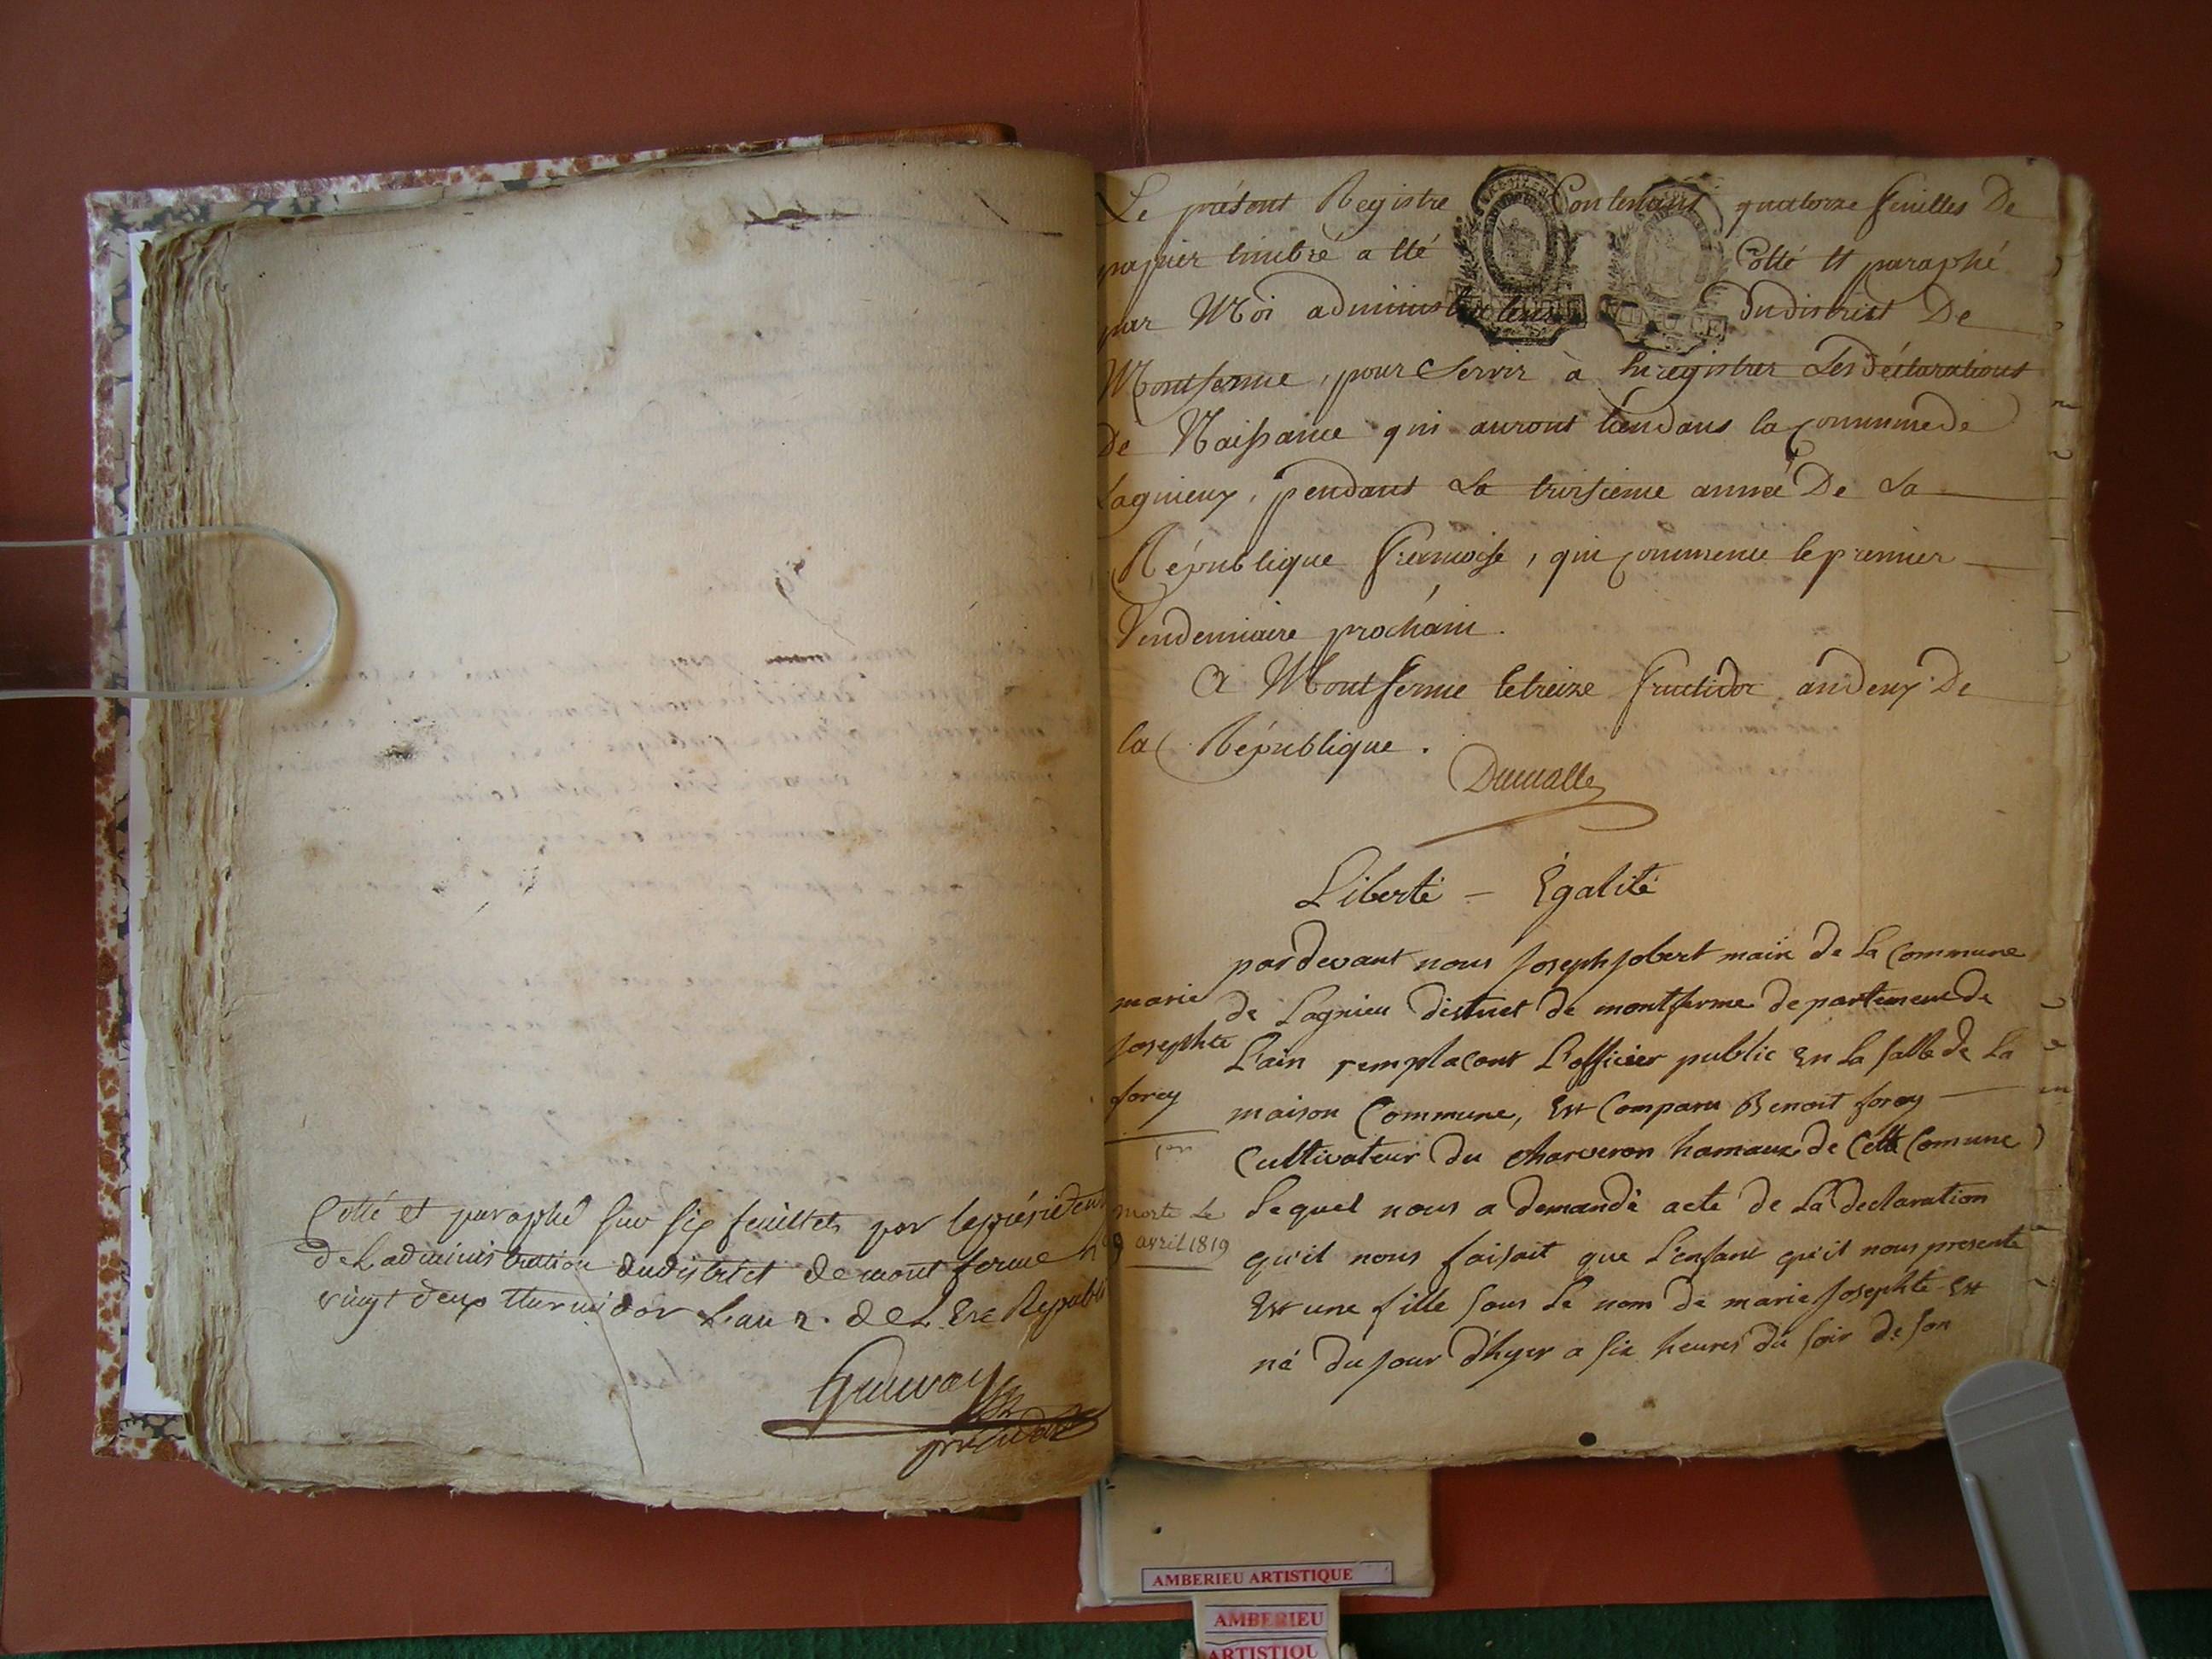 Cotté et paraphé sur six feuillets par le président
de Ladministration dudistrict de mont ferme
vingt deux thermidor L'an 2. de L'Ere Republi
Le présent Registre Contenant quatorze feuilles De
papier timbré a été Cotté et paraphé
par Moi administrateur Dudistrict De
Montferme, pour Servir à Enregistrer Les déclarations
De Naissance qui auront lieu dans la Commune de
Lagnieux, pendant La troisieme année De La
République francoise, qui Commence le premier
Vendemiaire prochain.
A Montferme le treize fructidor an deux De
la République.
Liberté - Égalité
pardevant nous Joseph Jobert maire de La Commune
marie
de Lagnieu district de montferme departement de
Josephte
L'ain remplacont L'officier public En La salle de La
forey
maison Commune, Est Comparu Benoit forey
1er
Cultivateur du charveron hamaux de Cette Comune
morte Le
Lequel nous a demandé acte de La declaration
avril 1819
qu'il nous faisait que L'enfant qu'il nous presente
Est une fille sous Le nom de marie Josephte Est
né du jour d'hyer a six heures du soir de son
AMBERIEU ARTISTIQUE
AMBERIEU
ARTISTIQU